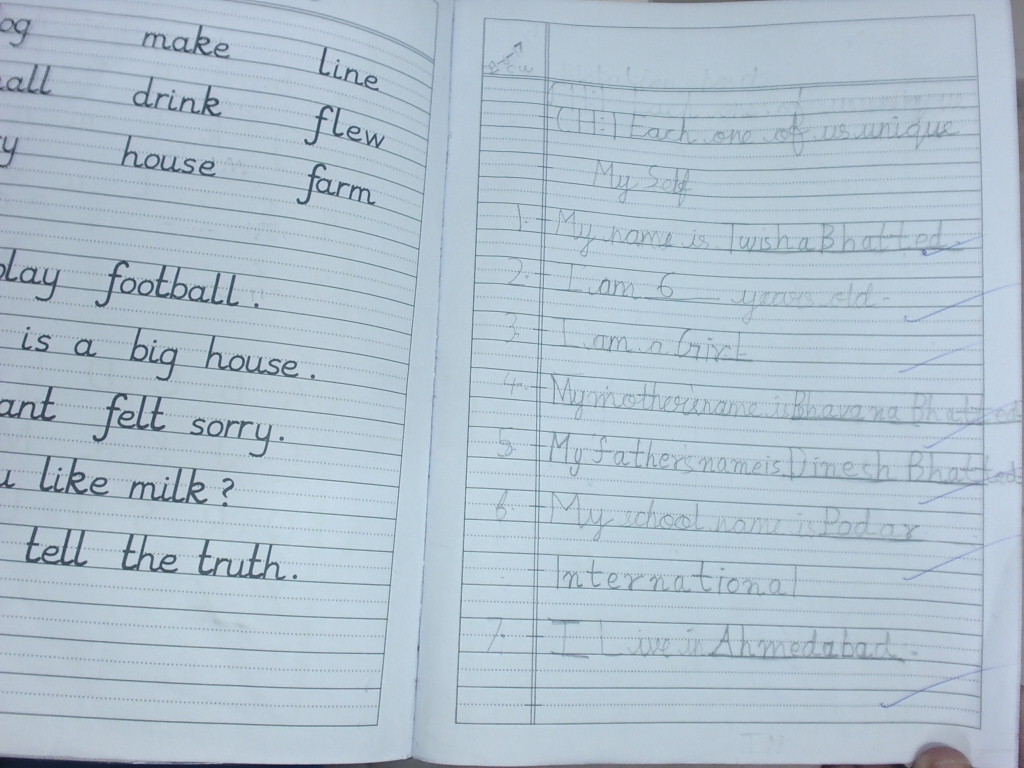 og make line
all drink flew
y house farm
play football.
is a big house.
ant felt sorry.
u like milk?
tell the truth.
(H:) Each one of us unique
My Self
1. My name is Twisha Bhatted
2. I am 6 years old.
3. I am a Girl
4. My mother's name is Bhavana Bhatted
5. My father's name is Dinesh Bhatted
6. My school name is Podar
International
7. I Live in Ahmedabad.